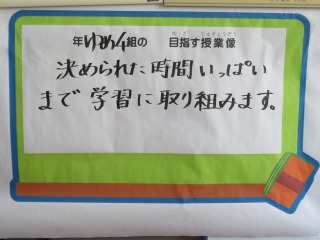 年ゆめ4組の 目指す授業像
決められた時間いっぱい
まで学習に取り組みます。